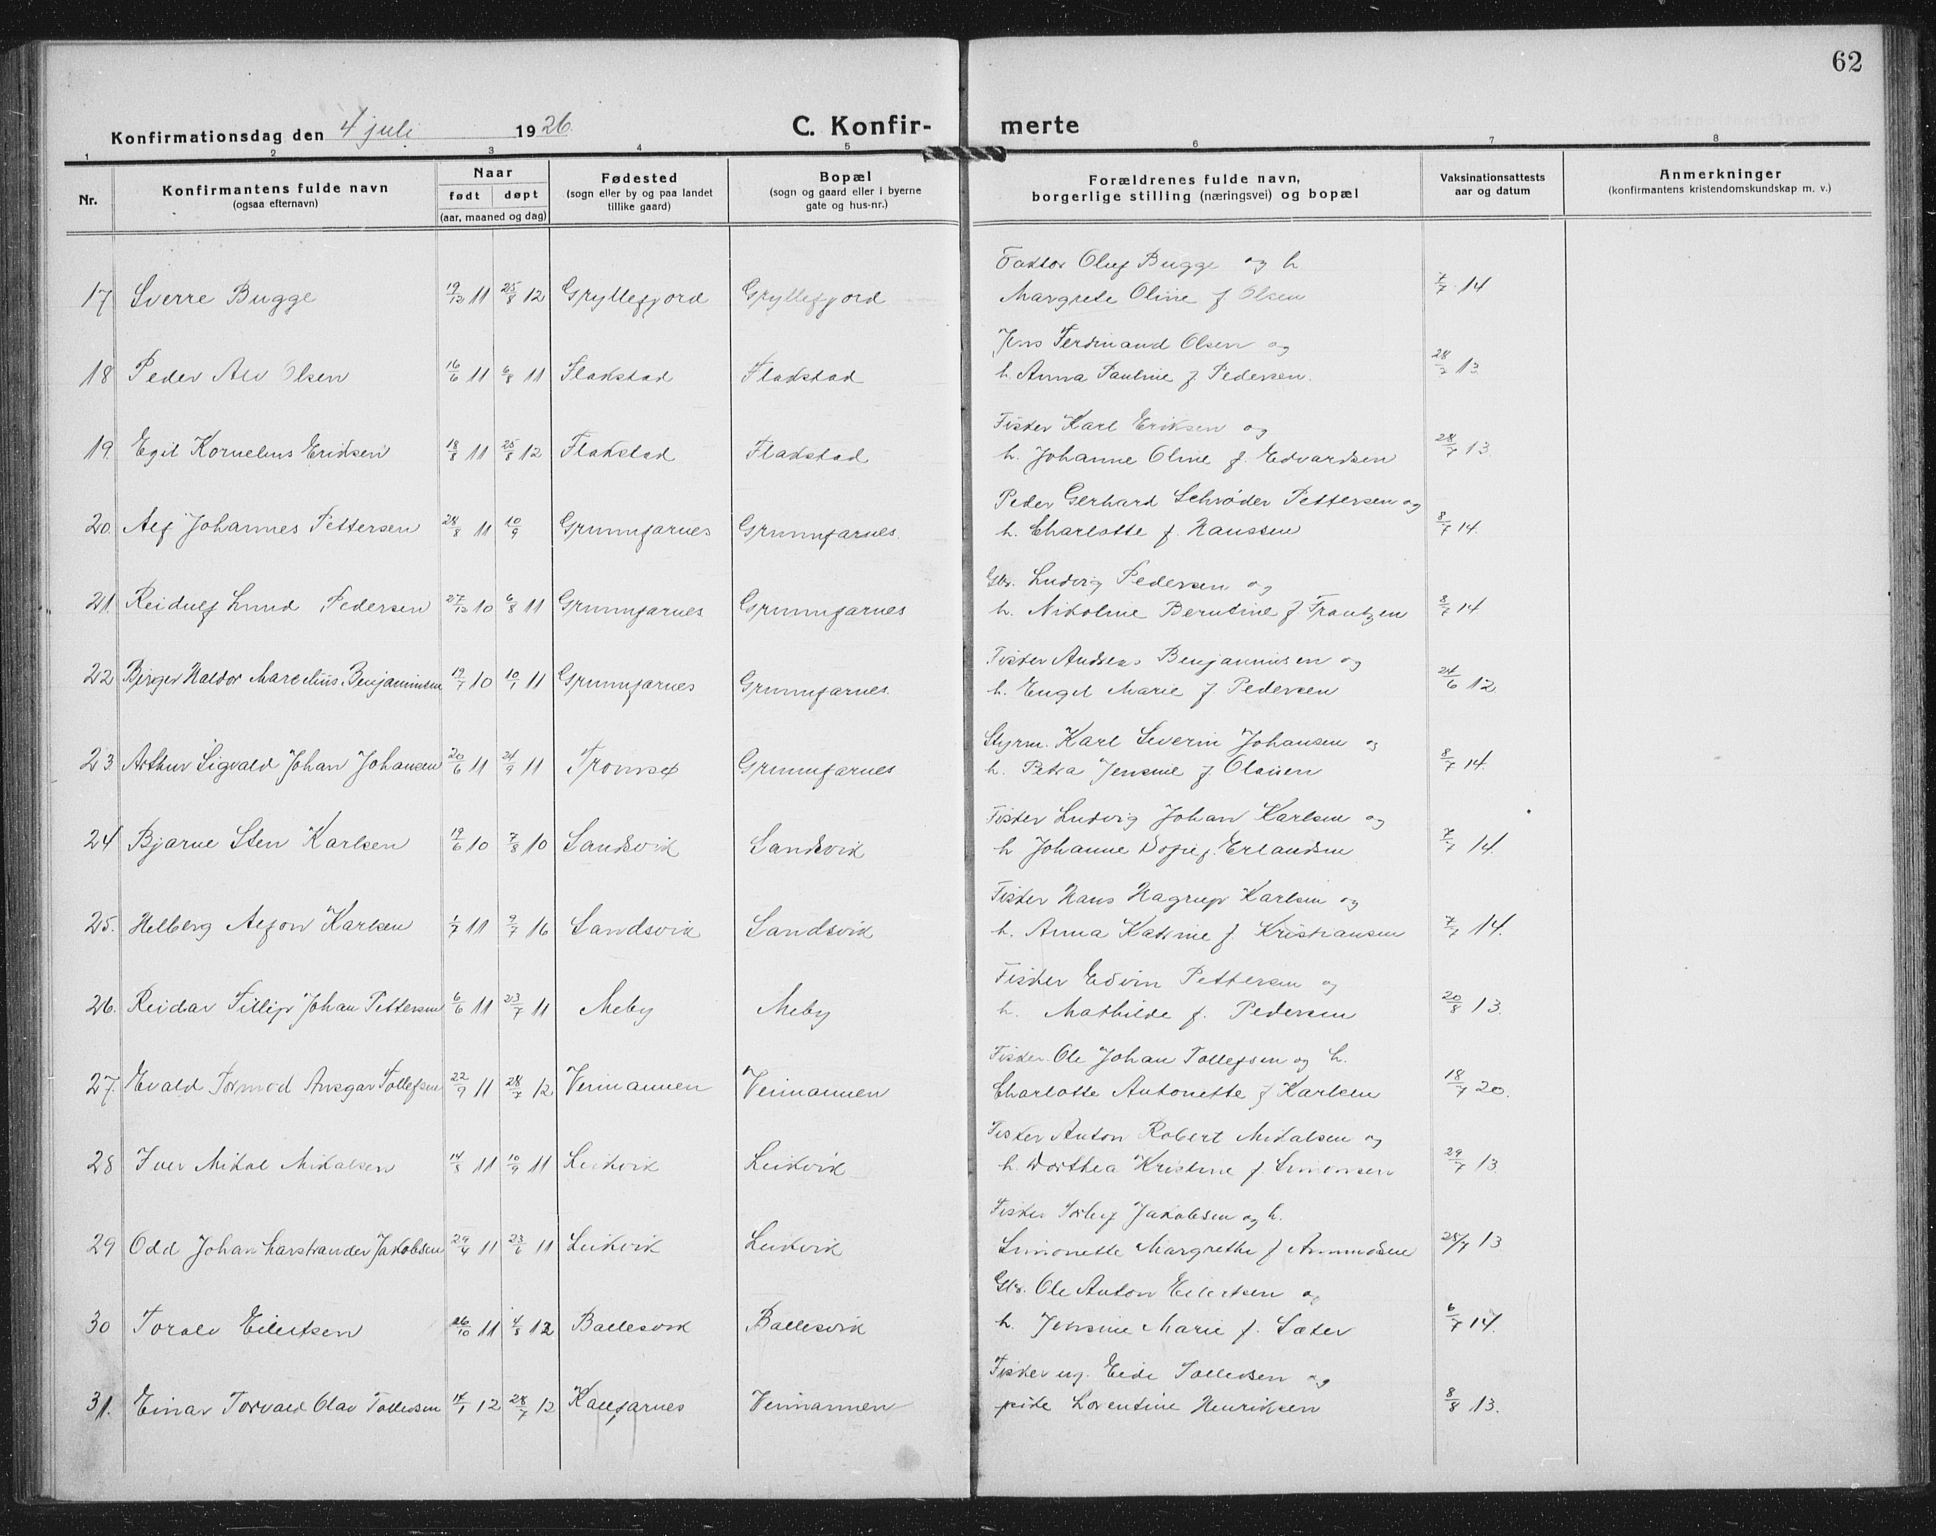 62
Konfirmationsdag den 4 juli 1926.
C. Konfir- merte
1 2 3 4 5 6 7 8
Nr. Konfirmantens fulde navn (ogsaa efternavn) Naar født døpt (aar, maaned og dag) Fødested (sogn eller by og paa landet tillike gaard) Bopæl (sogn og gaard eller i byerne gate og hus-nr.) Forældrenes fulde navn, borgerlige stilling (næringsvei) og bopæl Vaksinationsattests aar og datum Anmerkninger (konfirmantens kristendomskundskap m. v.)
Faktor Oluf Bugge og h
17 Sverre Bugge 19/12 11 25/8 12 Gryllefjord Gryllefjord Margrete Oline f Olsen 7/7 14
Jens Ferdinand Olsen og
18 Peder Alv Olsen 16/6 11 6/8 11 Flakstad Flakstad h. Anna Pauline f Pedersen. 28/7 13.
Fisker Karl Eriksen og
19. Egil Kornelius Eriksen 18/8 11 25/8 12 Flakstad Flakstad h. Johanne Oline f. Edvardsen 28/7 13.
Peder Gerhard Schrøder Pettersen og
20. Alf Johannes Pettersen 28/8 11 10/9 Grunnfarnes Grunnfarnes. h. Charlotte f. Hanssen 8/7 14.
Gbr. Ludvig Pedersen og
21. Reidulf Lund Pedersen 27/12 10 6/8 11 Grunnfarnes Grunnfarnes h. Nikoline Berntine f Frantzen 8/7 14
Fisker Andreas Benjaminsen og
22 Birger Haldor Marcelius Benjaminsen 19/7 10 10/1 11 Grunnfarnes Grunnfarnes. h. Engel Marie f Pedersen 24/6 12
Styrm. Karl Severin Johansen og
23. Arthur Sigvald Johan Johansen 20/6 11 24/9 11 Tromsø Grunnfarnes h. Petra Jensine f Olaisen 8/7 14.
Fisker Ludvig Johan Karlsen og
24 Bjarne Sten Karlsen 19/6 10 7/8 10 Sandsvik Sandsvik h Johanne Dofie f. Erlandsen 7/7 14.
Fisker Hans Hagrup Karlsen og
25. Helberg Alfon Karlsen 1/7 11 9/7 16 Sandsvik Sandsvik h. Anna Katrine f. Kristiansen 7/7 14.
Fisker Edvin Pettersen og
26. Reidar Fillip Johan Pettersen 6/6 11 23/7 11 Meby Meby h. Mathilde f. Pedersen 20/8 13.
Fisker. Ole Johan Tollefsen og h.
27. Evald Tormod Ansgar Tollefsen 22/9 11 28/7 12 Veimannen Veimannen Charlotte Antonette f Karlsen 18/7 20.
Fisker Anton Robert Mikalsen og
28 Iver Mikal Mikalsen 14/8 11 10/9 11 Leikvik Leikvik h. Dorthea Kristine f. Simonsen 29/7 13.
Fisker Torleif Jakobsen og h.
29 Odd Johan Larstrander Jakobsen 29/4 11 23/6 11 Leikvik Leikvik Simonette Margrethe f Ammundsen 28/7 13.
Gbr. Ole Anton Eilertsen og
30 Toralv Eilertsen 26/10 11 4/8 12 Ballesvik Ballesvik h. Jensine Marie f. Sæter 6/7 14.
Fisker ug. Eide Tollevsen og
31. Einar Torvald Olav Tollevsen 14/1 12 28/7 12 Kalfarnes Veimannen pike Lorentine Henriksen 8/8 13.